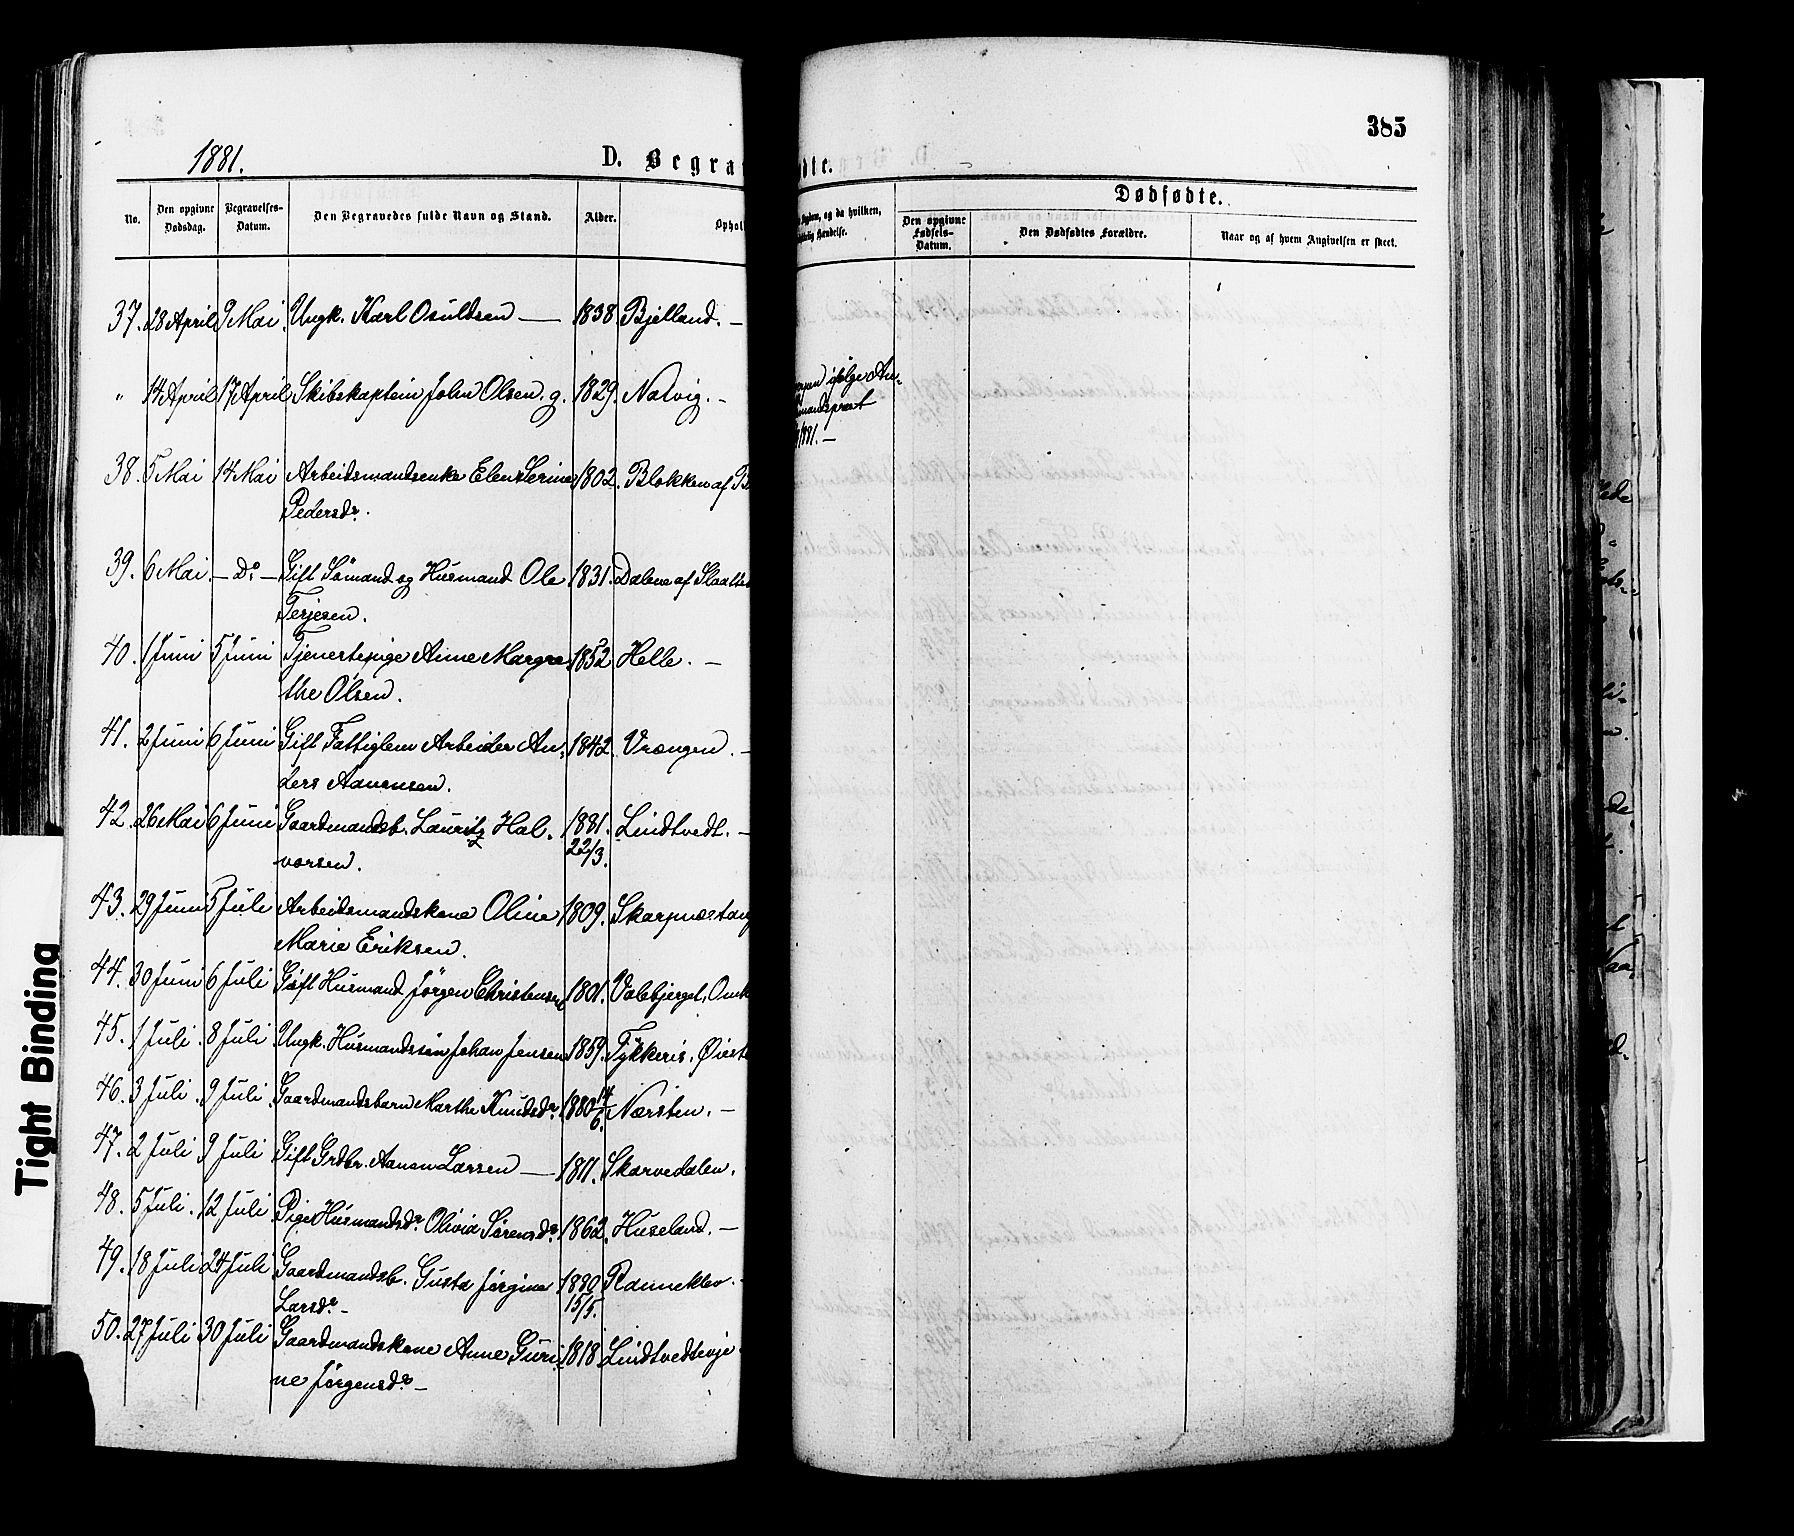 385
1881.
D. Begra
dte.
Dødfødte.
No.
Den opgivne Dødsdag.
Begravelses-Datum.
Den Begravedes fulde Navn og Stand.
Alder.
Ophol
og da hvilken,
Den opgivne Fødsels-Datum.
Den Dødfødtes Forældre.
Naar og af hvem Angivelsen er skeet.
37. 28 April 9 Mai. Ungk. Karl Osuldsen — 1838. Bjelland. –
" 14 April 17 April Skibskaptein John Olsen. g. 1829. Natvig. –
ifølge An-
/1881. –
38. 5 Mai 14 Mai Arbeidsmandsenke Elen Serine 1802. Blokken af B
Pedersdr.
39. 6 Mai. – Do – Gift Sømand og Husmand Ole 1831. Dalene af
Terjesen.
40. 1 Juni 5 Juni Tjenestepige Anne Margre 1852 Helle. –
the Olsen.
41. 2 Juni 6 Juni Gift Fattiglem Arbeider An- 1842. Vrængen. –
ders Aanensen.
42. 26 Mai 6 Juni Gaardmandsb. Lauritz Hal- 1881. Lindtvedt. –
22/3.
vorsen.
43. 29 Juni 5 Juli Arbeidsmandskone Oline 1809. Skarpnæstang
Marie Eriksen.
44. 30 Juni 6 Juli Gift Husmand Jørgen Christensen 1801. Valebjerget,
45. 1 Juli. 8 Juli Ungk. Husmandssøn Johan Jensen 1859. Tykkeris, Øieste
46. 3 Juli. 9 Juli. Gaardmandsbarn Marthe Knudsdr. 1880 14/6. Nærsten. –
47. 2 Juli 9 Juli Gift Grdbr. Aanen Larsen — 1811. Skarvedalen.
48. 5 Juli. 12 Juli Pige Husmandsdr. Olivia Sørensdr. 1862. Huseland. –
49. 18 Juli 24 Juli Gaardmandsb. Gusta Jørgine 1880 Ranneklev. –
15/5.
Larsdr. –
50. 27 Juli 30 Juli Gaardmandskone Anne Guri- 1818 Lindtvedtevje
ne Jørgensdr. –
Tight Binding